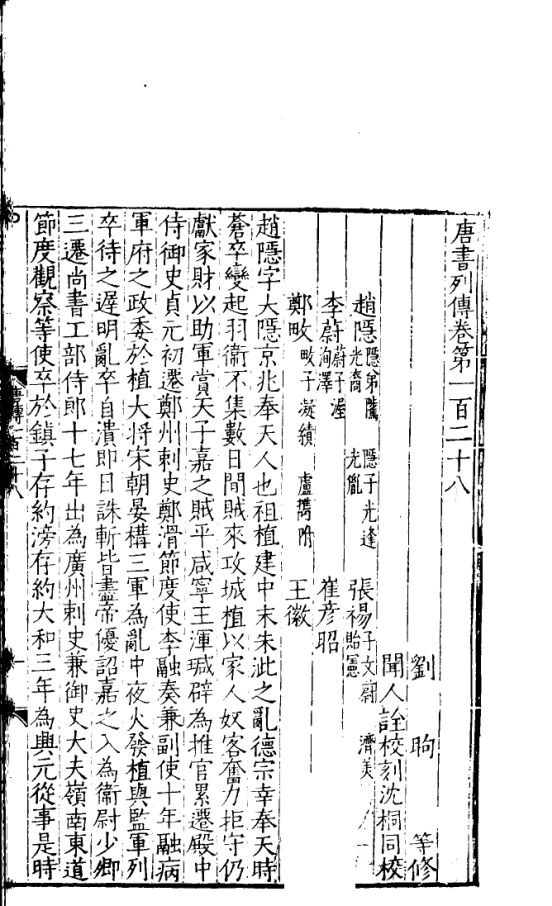 唐書列傳卷第一百二十八
劉昫等修
聞人詮校刻沈桐同校
趙隱隱弟騭光裔 隱子光逢光胤 張裼子文蔚貽憲 濟美
李蔚蔚子渥洵澤 崔彥昭
鄭畋畋子凝績 盧攜附 王徽
趙隱字大隱京兆奉天人也祖植建中末朱泚之亂德宗幸奉天時
蒼卒變起羽衛不集數日間賊來攻城植以家人奴客奮力拒守仍
獻家財以助軍賞天子嘉之賊平咸寧王渾瑊辟為推官累遷殿中
侍御史貞元初遷鄭州刺史鄭滑節度使李融奏兼副使十年融病
軍府之政委於植大將宋朝晏構三軍為亂中夜火發植與監軍列
卒待之遲明亂卒自潰即日誅斬皆盡帝優詔嘉之入為衞尉少卿
三遷尚書工部侍郎十七年出為廣州刺史兼御史大夫嶺南東道
節度觀察等使卒於鎮子存約滂存約大和三年為興元從事是時